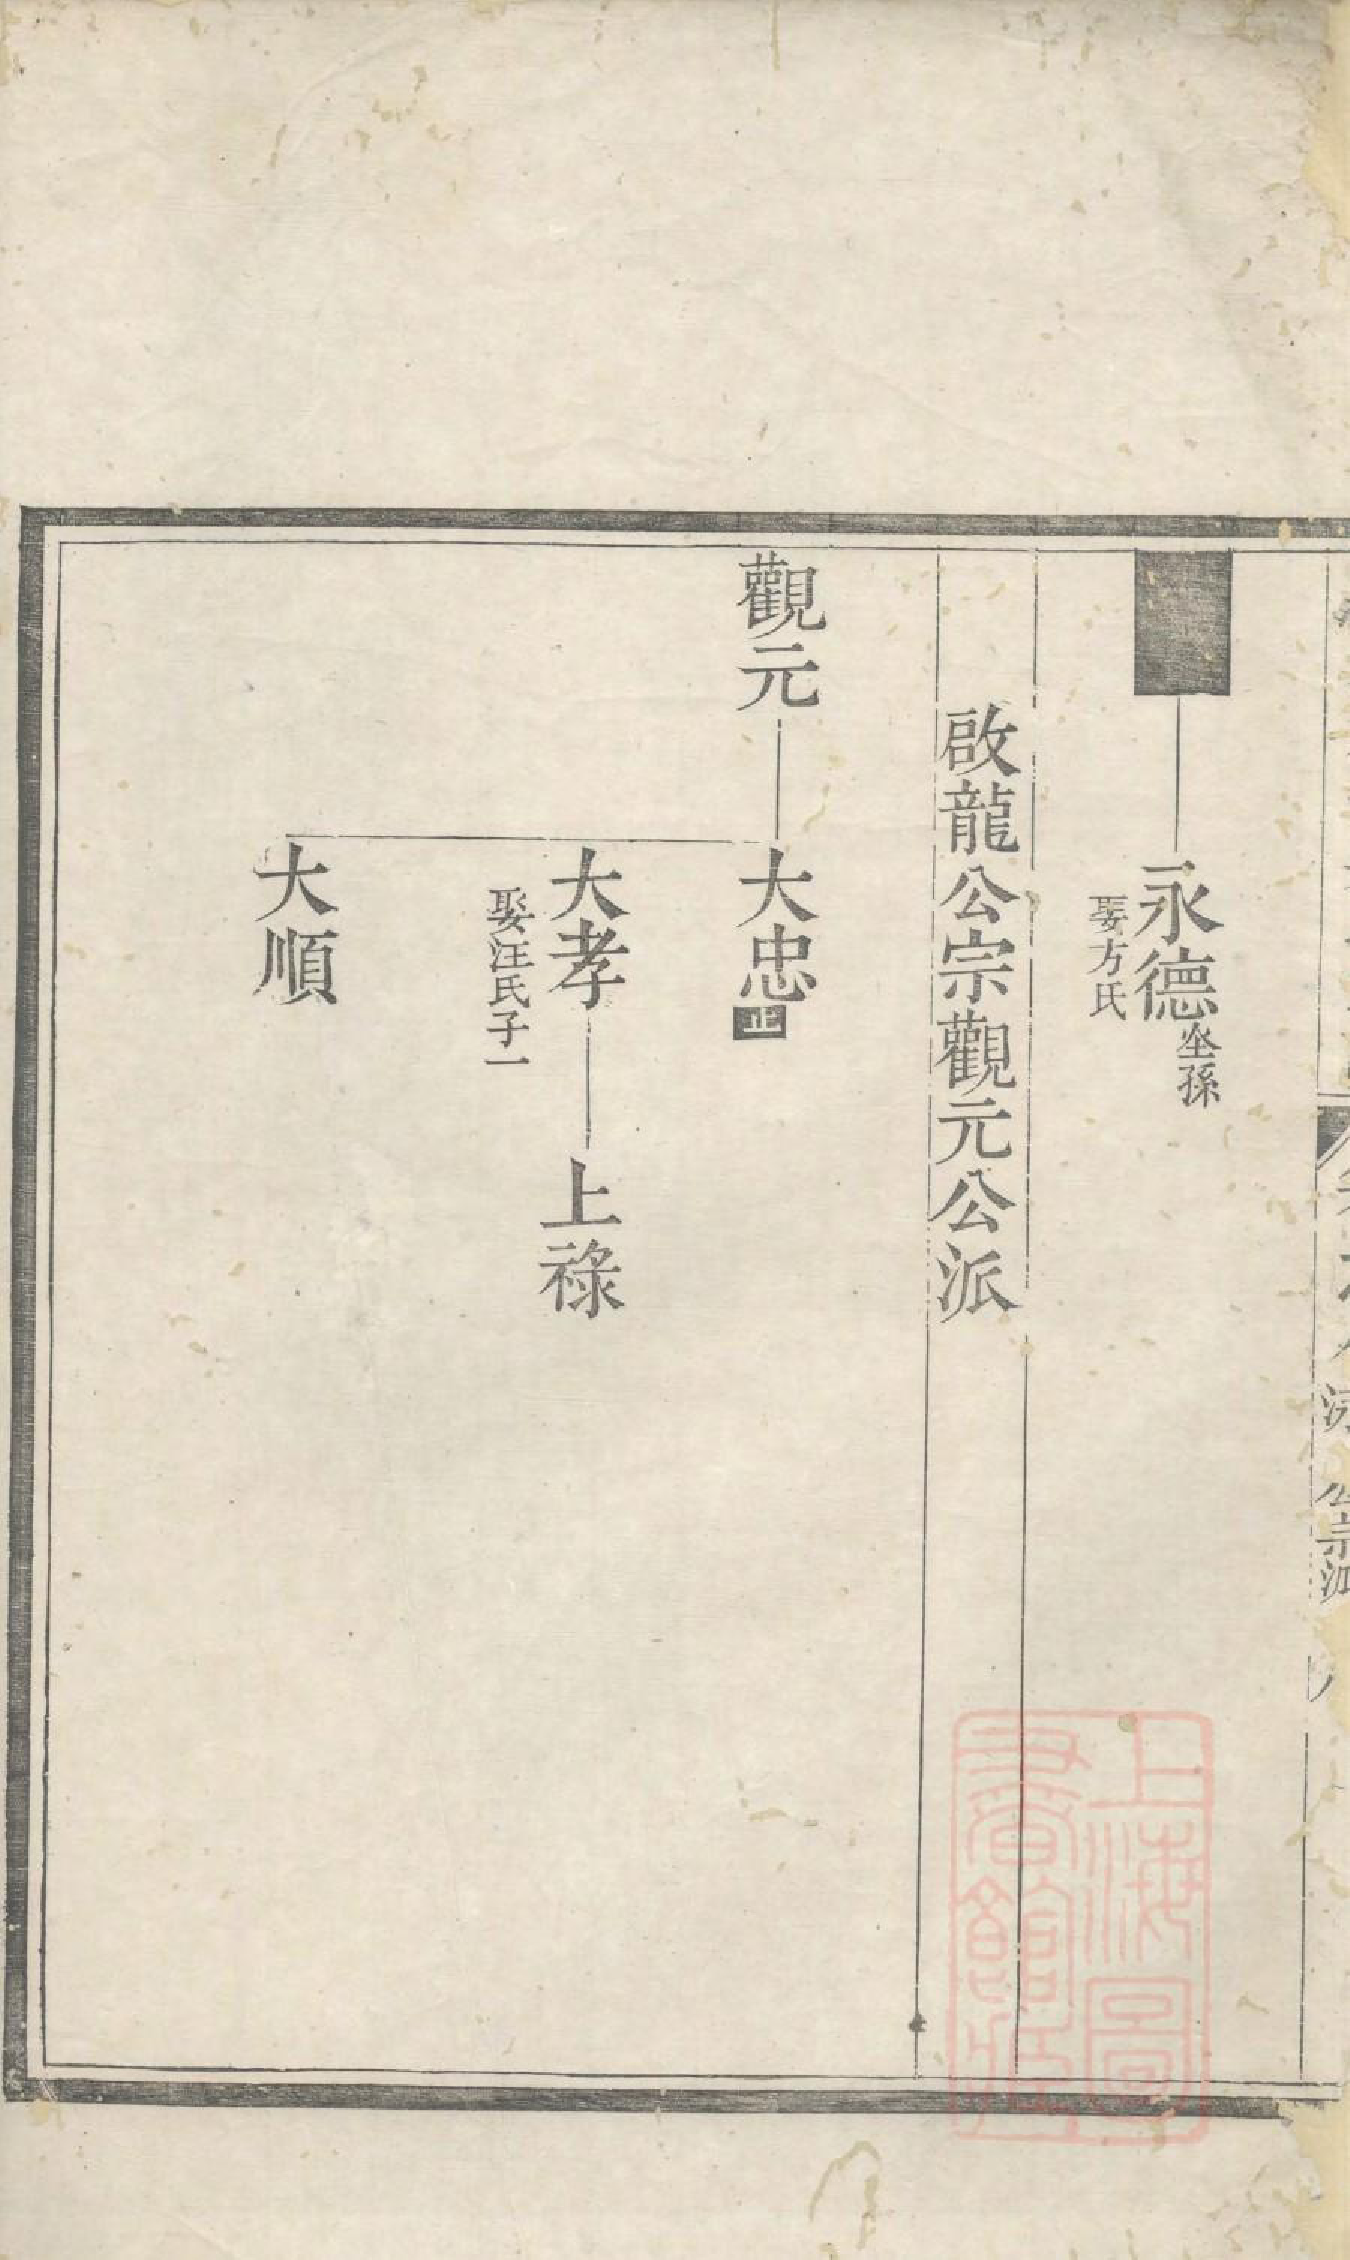 永德坐孫
娶方氏
啟龍公宗觀元公派
觀元
大忠正
大孝
娶汪氏子一
上祿
大順
上海圖
書館藏